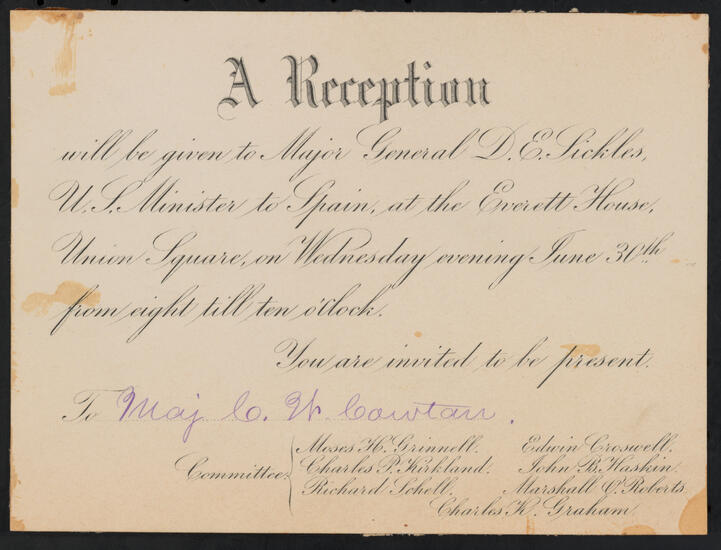 A Reception
will be given to Major General D. E. Sickles,
U. S. Minister to Spain, at the Everett House,
Union Square, on Wednesday evening June 30th
from eight till ten o'clock.
You are invited to be present.
To Maj C. W. Cowtan.
Committee. Moses H. Grinnell. Edwin Croswell.
Charles P. Kirkland. John B. Haskin.
Richard Schell. Marshall O. Roberts.
Charles K. Graham.